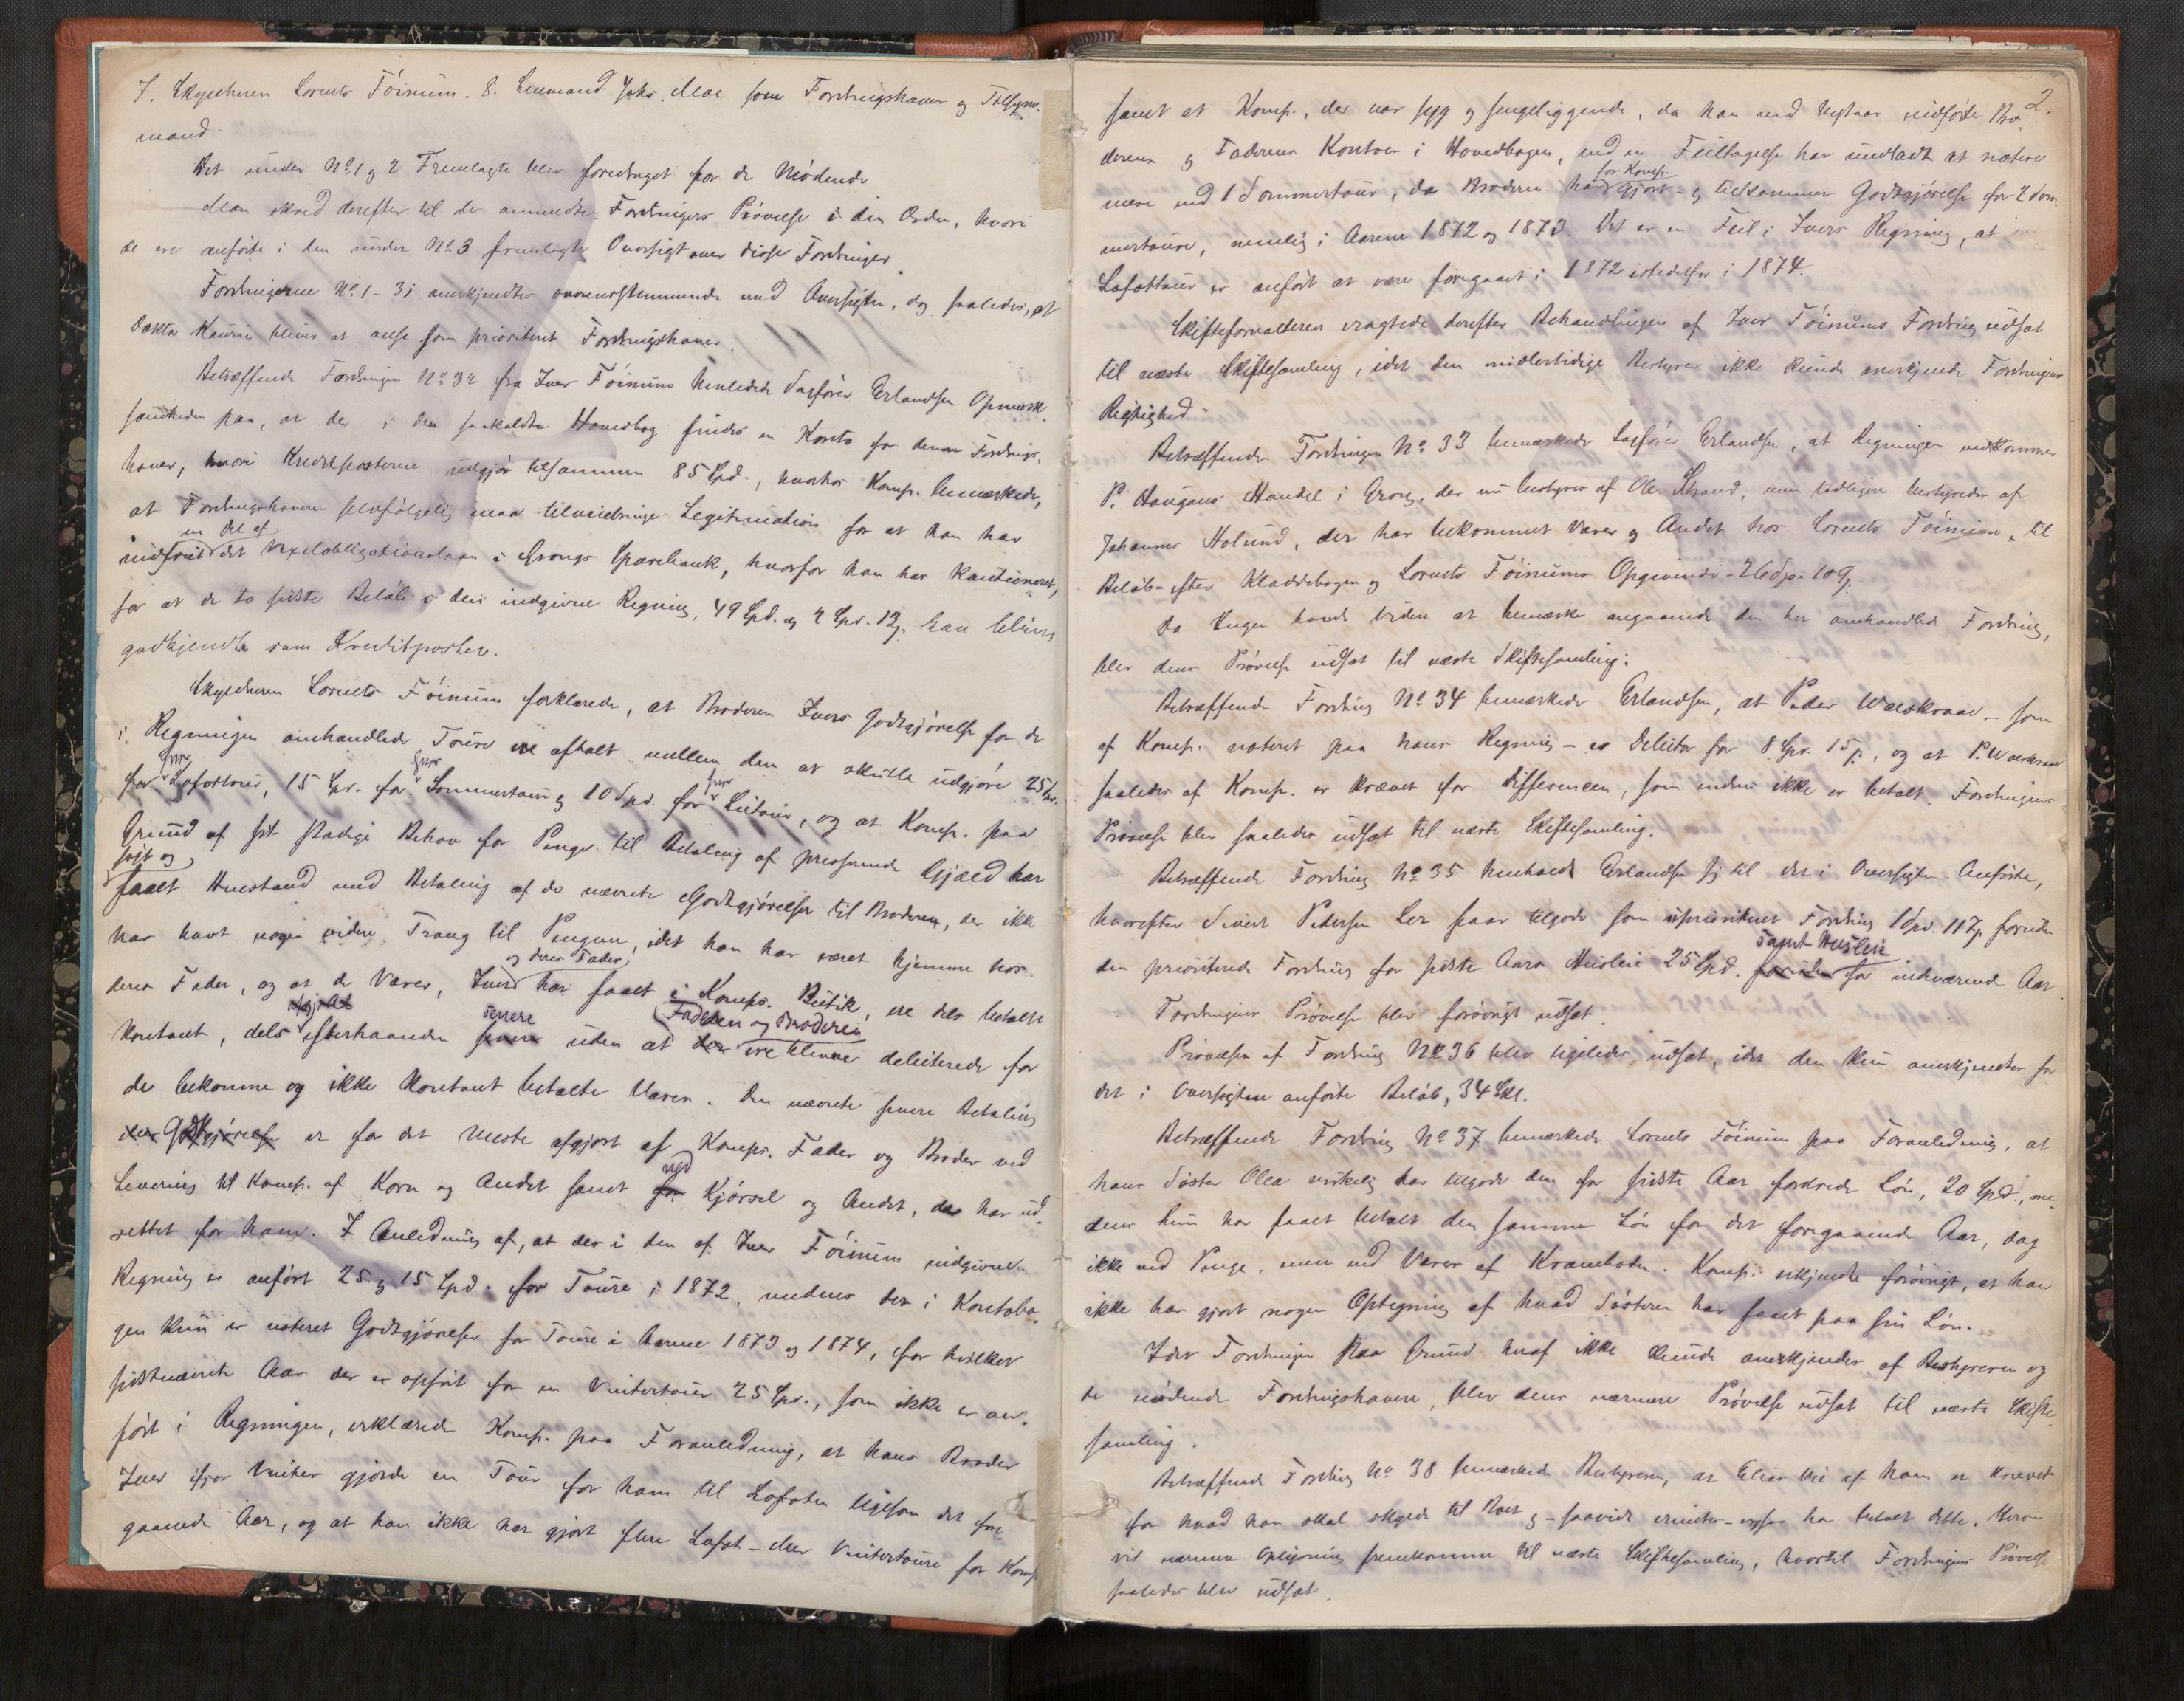 7. Skyldneren Lorents Föinum. 8. Lensmand Johs. Moe som Fordringshaver og Tilsyns-
mand.
Det under No 1 og 2 Fremlagte blev foredraget for de Mödende
Man skred derefter til de anmeldte Fordringers Prövelse i den Orden, hvori
de ere anförte i den under No 3 fremlagte Oversigt over disse Fordringer.
Fordringerne No 1-31 anerkjendtes overensstemmende med Oversigten, dog saaledes, at
Doktor bliver at anse som prioriteret Fordringshaver.
Betræffende Fordringen No 32 fra Iver Föinum henledede Sagförer Erlandsen Opmærk-
somheden paa, at der i den saakaldte Hovedbog findes en Konto for denne Fordrings-
haver, hvori Kreditposterne udgjör tilsammen 85 Spd., hvorhos Komp. bemærkede,
at Fordringshaveren selvfölgelig maa tilveiebringe Legitimation for at han har
en Del af
indfriet det Vexelobligationslaan i Grongs Sparebank, hvorfor han har kautioneret,
for at de to sidste Belöb i den indgivne Regning, 49 Spd. og 4 Spd. 12 kan blive
godkjendte som Kreditposter.
Skyldneren Lorents Föinum forklarede, at Broderen Ivers Godtgjörelse for de
i Regningen omhandlede Toure ere aftalt mellem dem at skulle udgjöre 25 Spd.
hver hver hver
for Lofottour, 15 Spd. for Sommertour og 10 Spd. for , og at Komp. paa
Grund af sit stadige Behov for Penge til Betaling af presserende Gjæld har
sögt og
faaet Henstand med Betaling af de nævnte Godtgjörelser til Broderen, der ikke
har havt nogen videre Trang til Pengene, idet han har været hjemme hos
og deres Fader,
deres Fader, og at de Varer, Iver har faaet i Komps. Butik, ere dels betalt
senere Faderen og Broderen
kontant, dels efterhaanden senere uden at der ere blevne debiterede for
de bekomne og ikke kontant betalte Varer. Den nævnte senere Betaling
Godtgjörelse er for det meste afgjort af Komps. Fader og Broder ved
ved
Levering til Komp. af Korn og Andet samt for Kjörsel og Andet, de har ud-
rettet for ham. I Anledning af, at der i den af Iver Föinum indgivne
Regning er anfört 25 og 15 Spd. for Toure i 1872, medens der i Kontobo-
gen kun er noteret Godtgjörelse for Toure i Aarene 1873 og 1874, for hvilket
sidstnævnte Aar der er opfört for en Vintertour 25 Spd., som ikke er an-
fört i Regningen, erklærede Komp. paa Foranledning, at hans Broder
Iver ifjor Vinter gjorde en Tour for ham til Lofoten ligesom det fore-
gaaende Aar, og at han ikke har gjort flere Lofot- eller Vintertoure for Komp.
2.
samt at Komp., der var syg og sengeliggende, da han ved Nytaar indförte Bro-
derens og Faderens Kontoer i Hovedbogen, ved en Feiltagelse har undladt at notere
for Komp.
mere end 1 Sommertour, da Broderen har gjort - og tilkommer Godtgjörelse for 2 Som-
mertoure, nemlig i Aarene 1872 og 1873. Det er en Feil i Ivers Regning, at en
Lofottour er anfört at være foregaaet i 1872 istedetfor i 1874.
Skifteforvalteren eragtede derefter Behandlingen af Iver Föinums Fordring udsat
til næste Skiftesamling, idet den midlertidige Bestyrer ikke kunde anerkjende Fordringens
Rigtighed.
Betræffende Fordringen No 33 bemærkede Sagförer Erlandsen, at Regningen vedkommer
P. Haugans Handel i Grong, der nu bestyres af Ole Strand, men tidligere bestyredes af
Johannes Holund, der har bekommet Varer og Andet hos Lorents Föinum, til
Belöb - efter Kladdebogen og Lorents Föinums Opgivende - 26 Spd. 10
Da Ingen havde videre at bemærke angaaende den her omhandlede Fordring,
blev dens Prövelse udsat til næste Skiftesamling.
Betræffende Fordring No 34 bemærkede Erlandsen, at Peder - som
af Komp. noteret paa hans Regning - er Debitor for 8 Spd. 15 , og at P.
saaledes af Komp. er krævet for Differencen, som endnu ikke er betalt. Fordringens
Prövelse blev saaledes udsat til næste Skiftesamling.
Betræffende Fordring No 35 henholdt Erlandsen sig til det i Oversigten Anförte,
hvorefter Sivert Pedersen Ler faar tilgode som uprioriteret Fordring 1 Spd. 117 foruden
samt Husleie
den prioriterede Fordring for sidste Aars Husleie 25 Spd. foruden for indeværende Aar.
Fordringens Prövelse blev forövrigt udsat.
Prövelsen af Fordring No 36 blev ligeledes udsat, idet den kun anerkjendtes for
det i Oversigten anförte Belöb, 34 Skl.
Betræffende Fordring No 37 bemærkede Lorents Föinum paa Foranledning, at
hans Söster Olea virkelig har tilgode den for sidste Aar fordrede Lön, 20 Spd., me-
dens hun har faaet betalt den samme Lön for det foregaaende Aar, dog
ikke med Penge, men med Varer af Kramboden. Komp. erkjendte forövrigt, at han
ikke har gjort nogen Optegning af hvad Sösteren har faaet paa sin Lön.
Idet Fordringen paa Grund heraf ikke kunde anerkjendes af Bestyreren og
de mödende Fordringshavere, blev dens nærmere Prövelse udsat til næste Skifte-
samling.
Betræffende Fordring No 38 bemærkede Bestyreren, at Elias af ham er krævet
for hvad han skal skylde til Boet og - saavidt erindres - ogsaa har betalt dette. Herom
vil nærmere Oplysning fremkomme til næste Skiftesamling, hvortil Fordringens Prövelse
saaledes blev udsat.